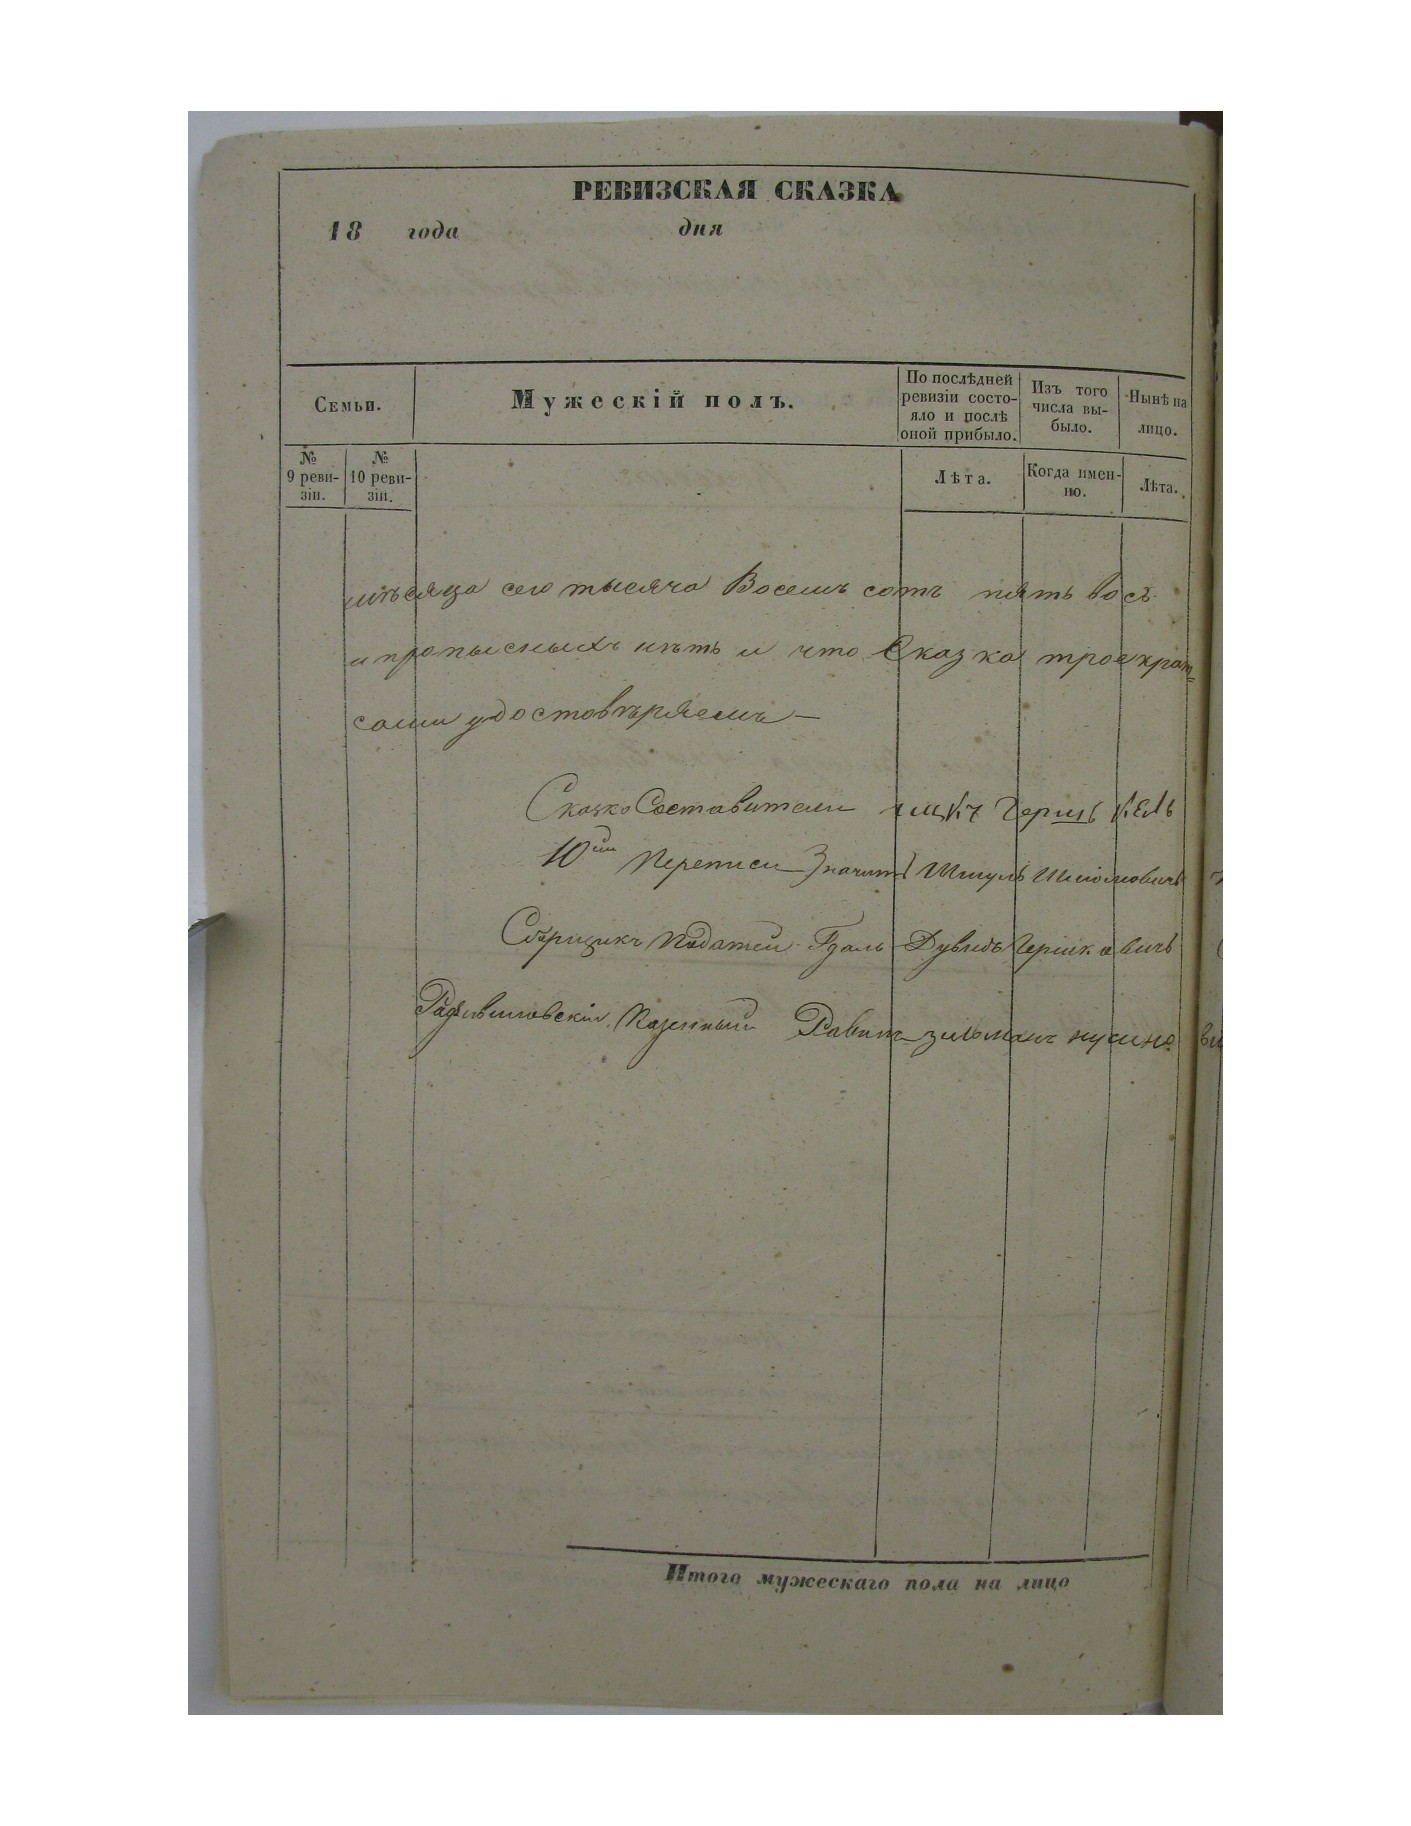 РЕВИЗСКАЯ СКАЗКА
18 года дня
Семьи.
Мужескій полъ.
По послѣдней ревизіи состо-
яло и послѣ оной прибыло.
Изъ того числа вы-
было.
Нынѣ на лицо.
№ 9 реви-
зіи.
№ 10 реви-
зіи.
Лѣта.
Когда имен-
но.
Лѣта.
мѣсяца сего тысяча Восемъ сотъ пять вос
и прописныхъ нѣтъ и что Сказка троекрат=
сами удостовѣряемъ —
Сказко Составители Герш
10ии Переписи Шмуль
Сборщикъ Податей Дувидъ Гершковичъ
Радзивиловскій Казенный Равинъ зильманъ нусино
Итого мужескаго пола на лицо